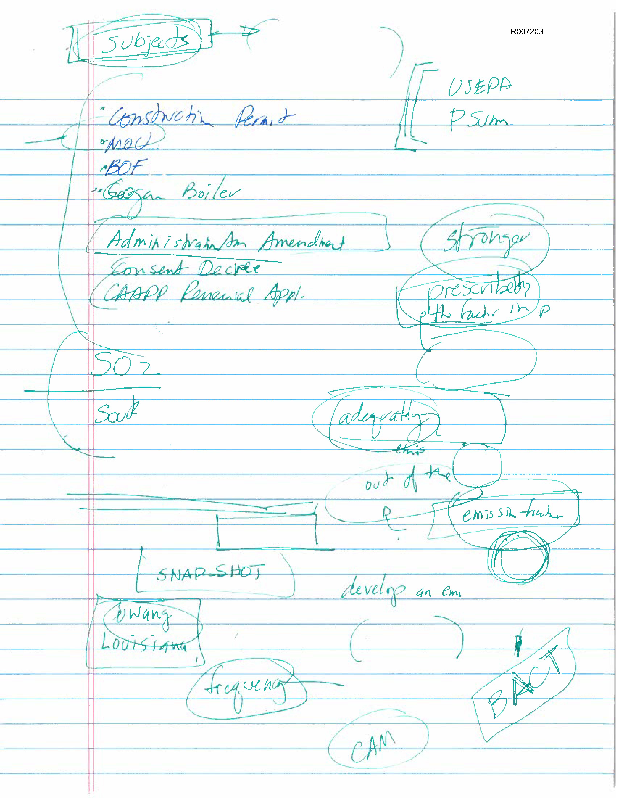 R007203
Subjects
USEPA
P Sum.
Construction Permit
BOF
Boiler
Administration Amendment
Consent Decree
CAAPP Renewal Appl.
stronger
prescribed
the factor in p
SO2
adequately
this
out of the
emission factor
SNAP-SHOT
develop an em
Louisiana
frequency
BACT
CAM